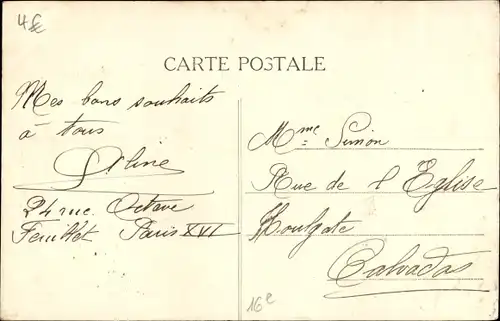 4€
CARTE POSTALE
Mes bons souhaits
à tous
Aline
24 rue Octave
Feuillet Paris XVI
Mme Simon
Rue de l'Eglise
Houlgate
Calvados
16e